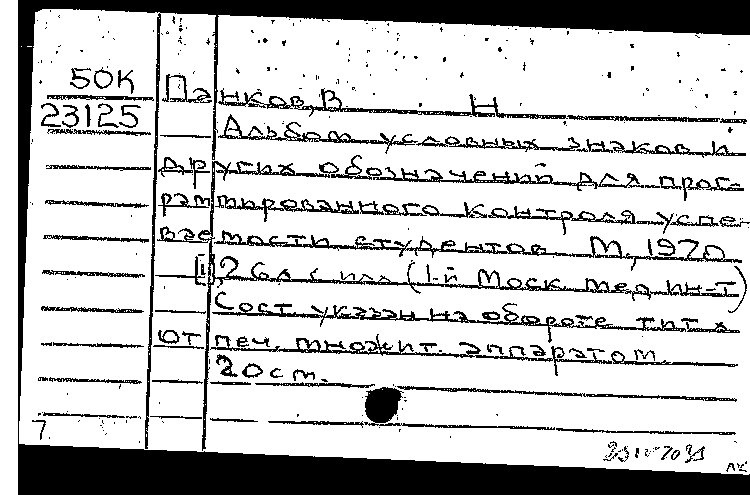 50К Панков, В. Н
23125 Альбом условных знаков и
других обозначений для прог-
раммированного контроля успе-
ваемости студентов М., 1970
[1], 26л с илл (1-й Моск мед ин-т)
Сост указан на обороте тит л
От печ. множит. аппаратом.
20 см.
7